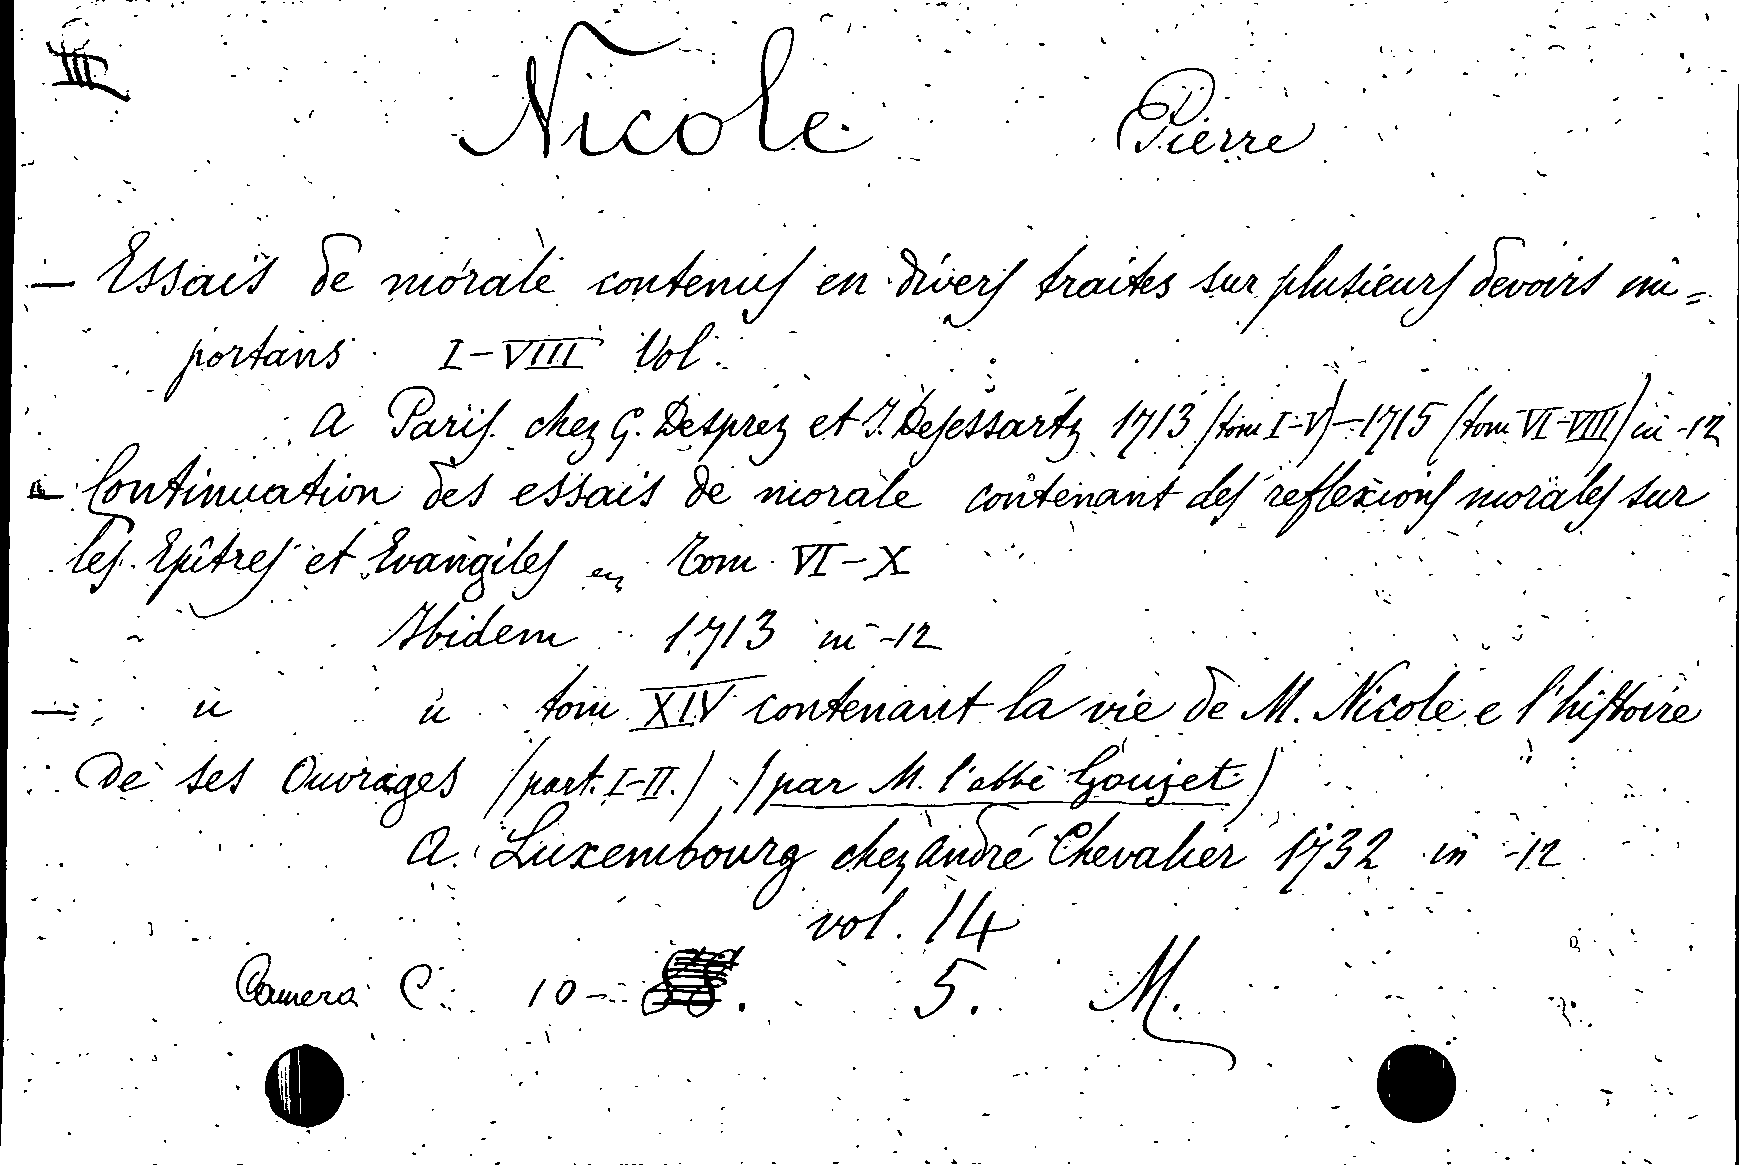 III
Nicole Pierre
— Essais de morale contenus en divers traites sur plusieurs devoirs im=
portans I-VIII Vol.
A Paris chez G. Desprez et J. Desessartz 1713 (tom I-V) — 1715 (tom VI-VIII) in -12
— Continuation des essais de morale contenant des reflexions morales sur
les Epîtres et Evangiles en Tom VI-X
Ibidem 1713 in -12
— " " tom XIV contenant la vie de M. Nicole e l'histoire
de ses Ouvrages (part. I-II.) (par M. l'abbé Goujet)
A Luxembourg chez André Chevalier 1732 in -12
vol. 14
Camera C. 10- . 5. M.